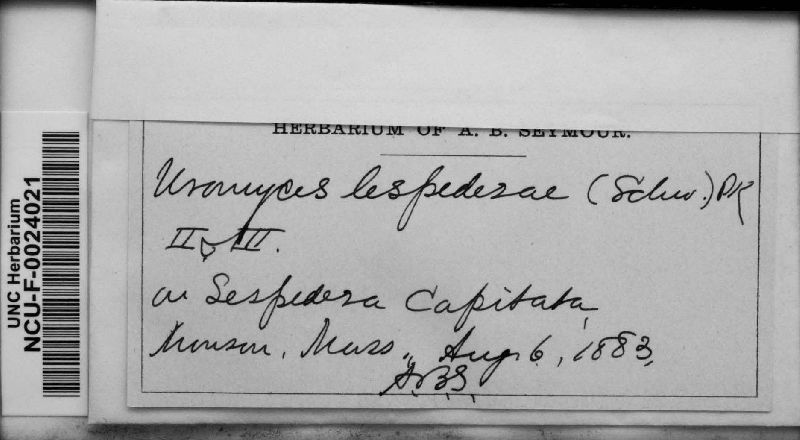 UNC Herbarium
NCU-F-0024021
HERBARIUM OF A. B. SEYMOUR.
Uromyces lespedezae (Schw.) Pk
II & III.
on Lespedeza Capitata,
Monson, Mass., Aug. 6, 1883,
A.B.S.,